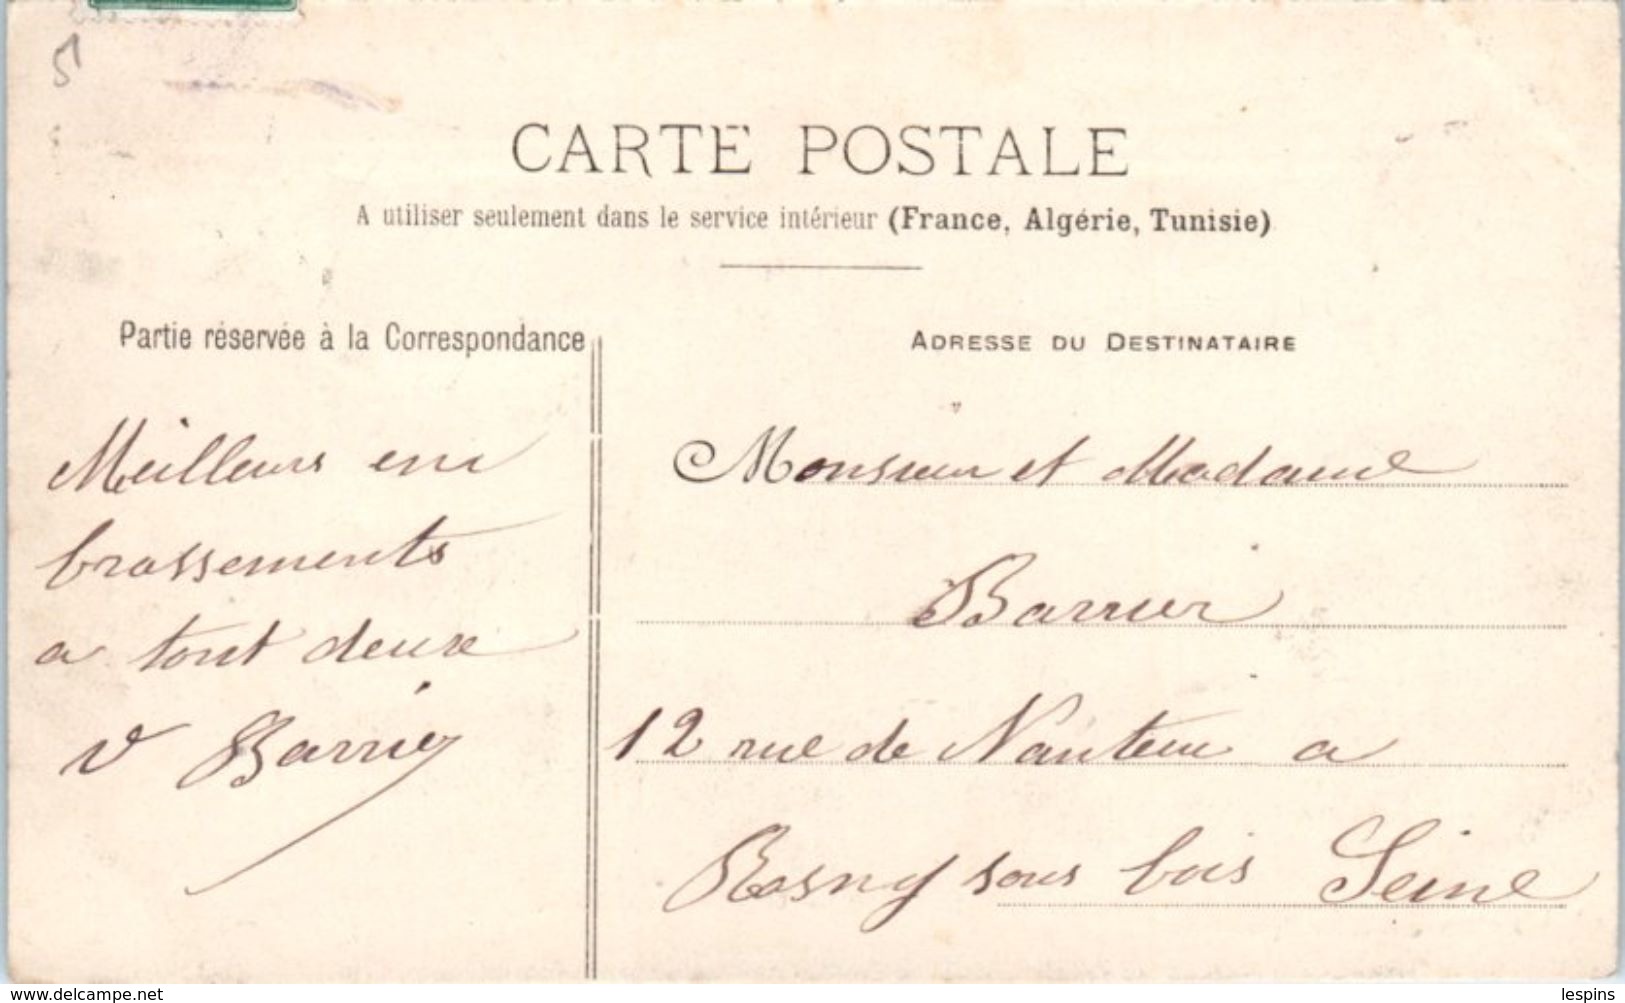 5
CARTE POSTALE
A utiliser seulement dans le service intérieur (France, Algérie, Tunisie)
Partie réservée à la Correspondance
ADRESSE DU DESTINATAIRE
Meilleurs em
brassements
a tout deux
V Barrier
Monsieur et Madame
Barrier
12 rue de Nanteuil a
Rosny sous bois Seine
www.delcampe.net
lespins